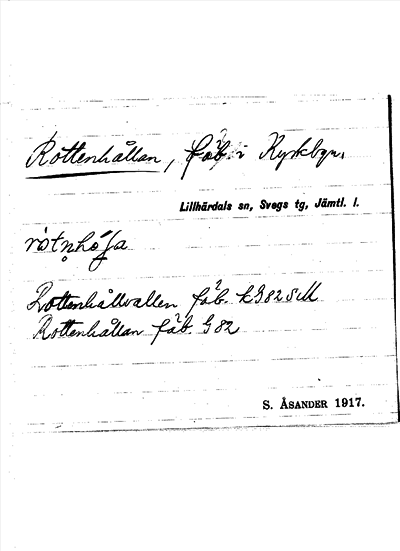 Rottenhållan, fäb. i Kyrkbyn.
Lillhärdals sn, Svegs tg, Jämtl. l.
Rottenhållvallen fäb. k G82 SM
Rottenhållan fäb. G82
S. ÅSANDER 1917.